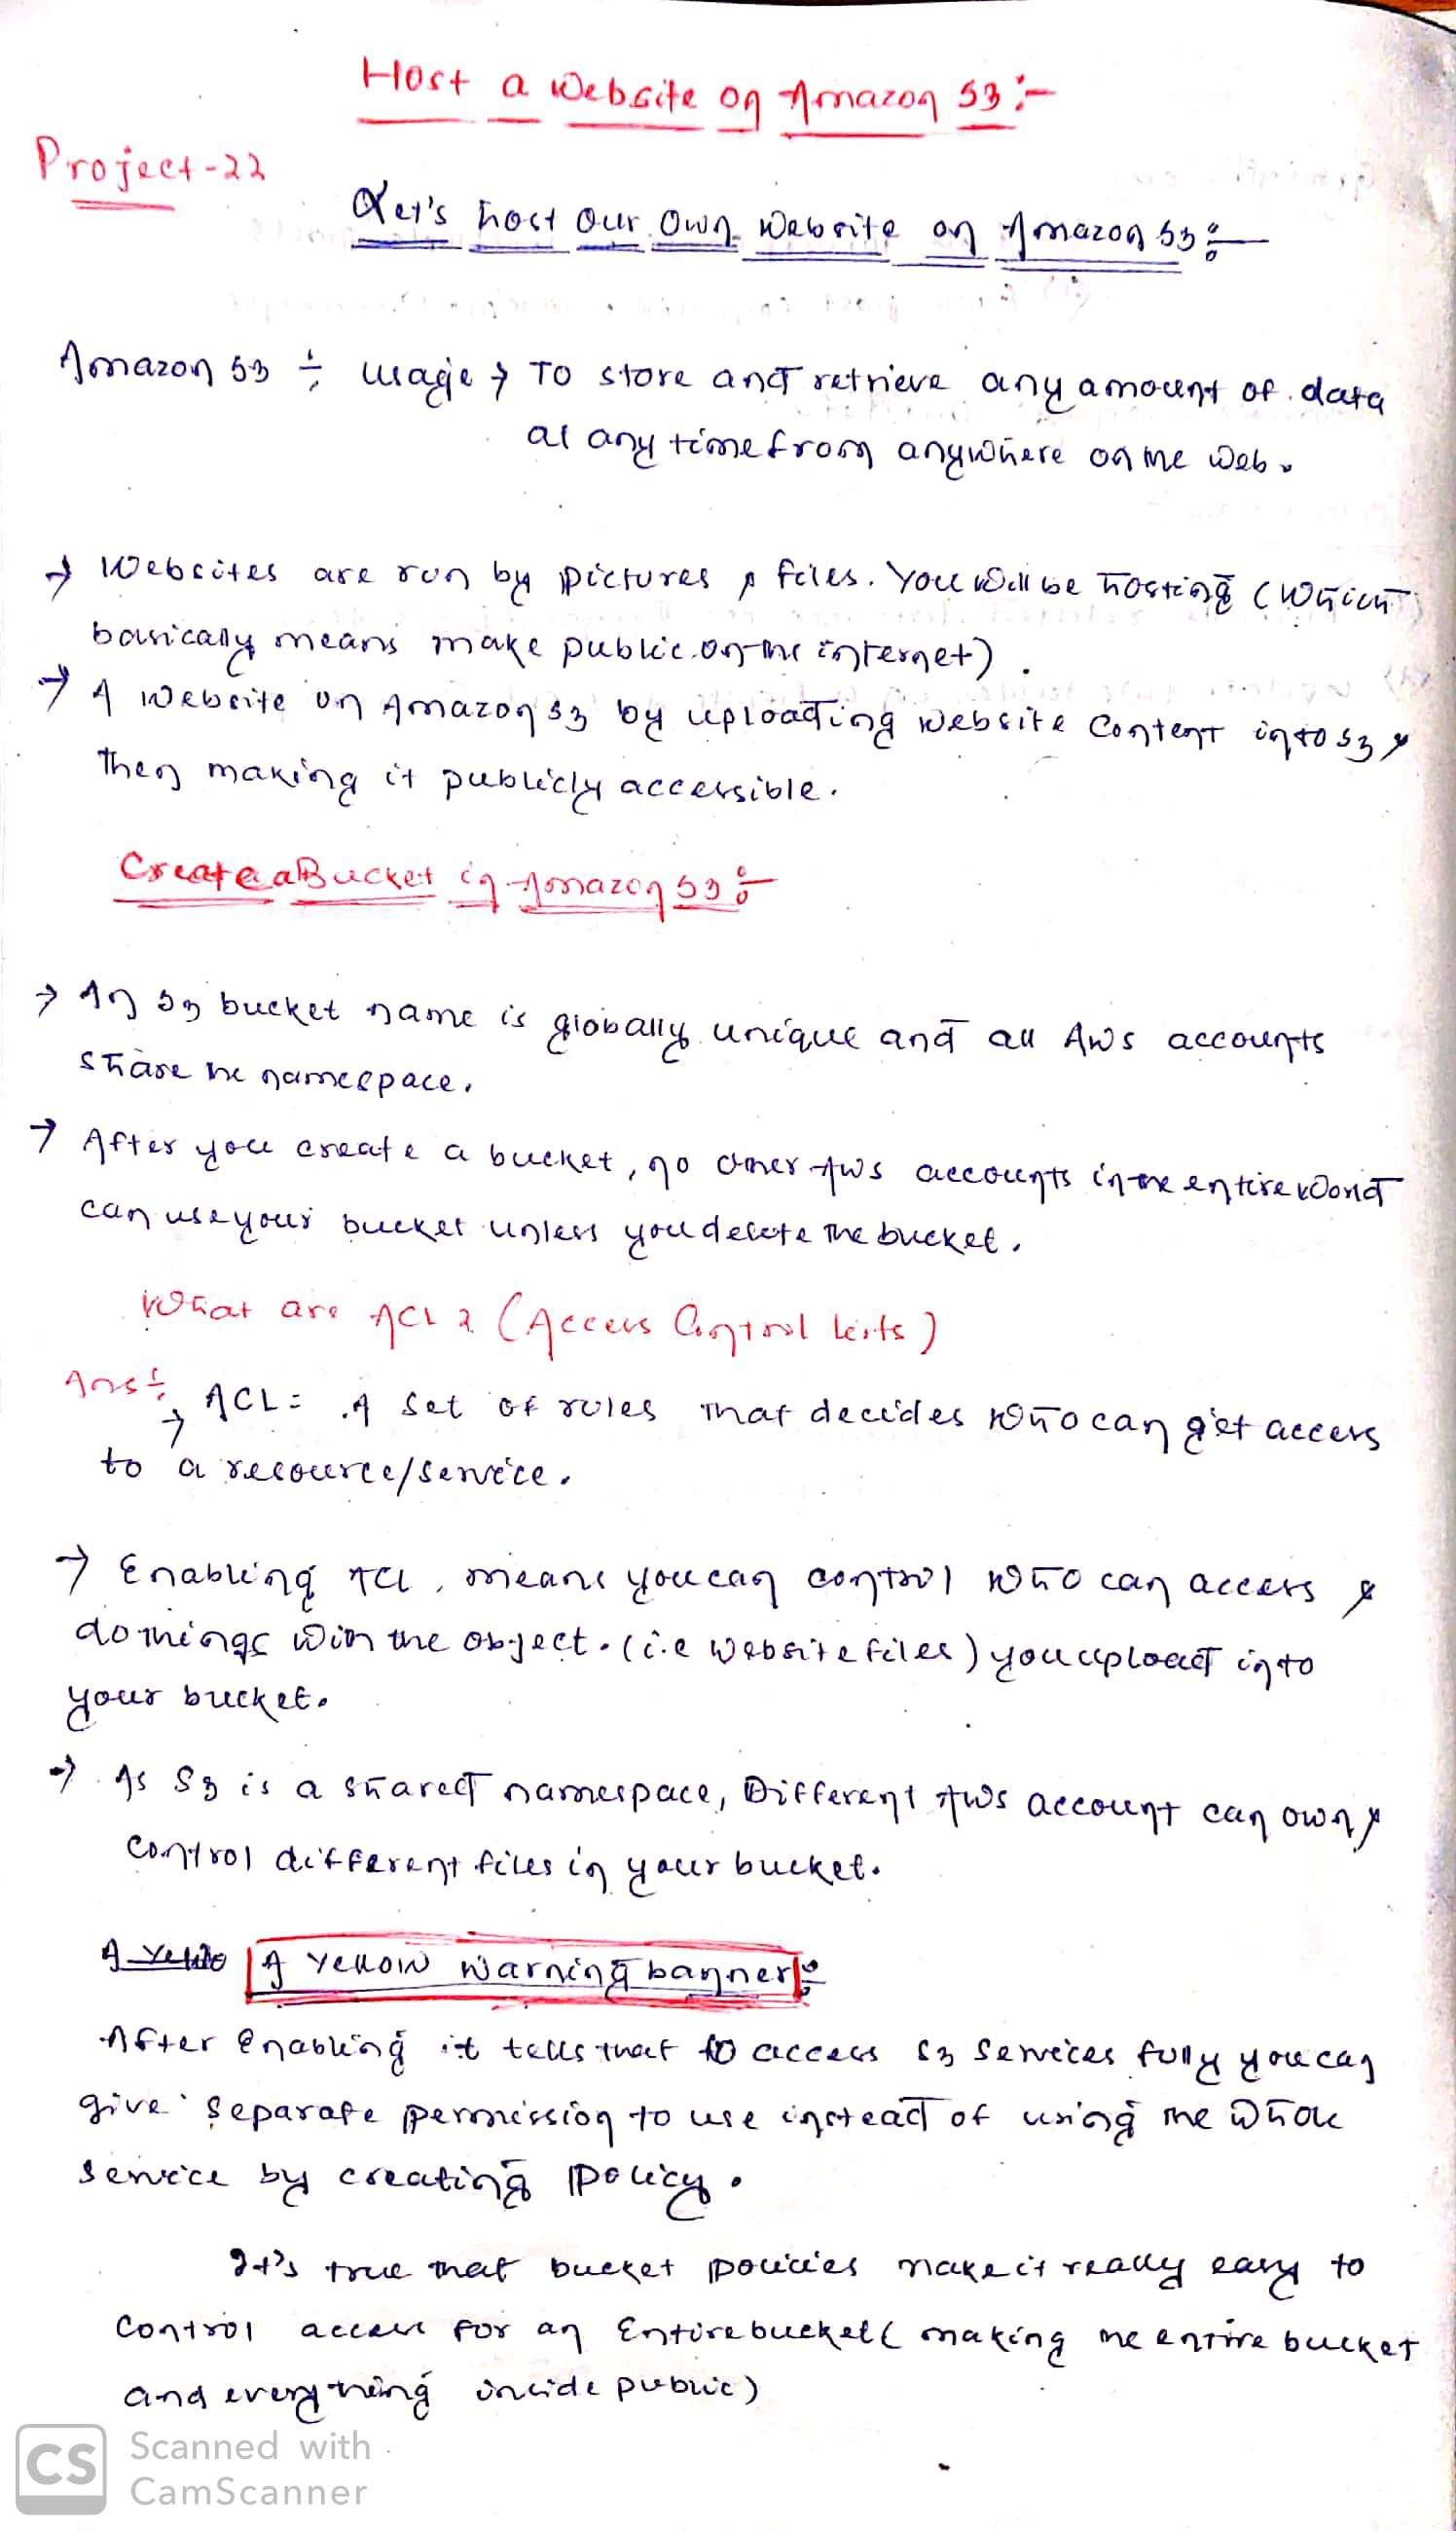 Host a Website on Amazon S3 :-
Project-22
Let's host our own website on Amazon S3 :-
Amazon S3 ÷ usage → To store and retrieve any amount of data
at any time from anywhere on the web.
→ Websites are run by pictures & files. You will be hosting (which
basically means make public on the internet).
→ A website on Amazon S3 by uploading website content into S3 &
then making it publicly accessible.
Create a Bucket in Amazon S3 :-
→ An S3 bucket name is globally unique and all AWS accounts
share the namespace.
→ After you create a bucket, no other AWS accounts in the entire world
can use your bucket unless you delete the bucket.
What are ACL? (Access Control Lists)
Ans ÷
→ ACL = A set of rules that decides who can get access
to a resource/service.
→ Enabling ACL, means you can control who can access &
do things with the object. (i.e website files) you upload into
your bucket.
→ As S3 is a shared namespace, Different AWS account can own &
control different files in your bucket.
A Yello A Yellow Warning banner :-
After Enabling it tells that to access S3 services fully you can
give separate permission to use instead of using the whole
service by creating policy.
It's true that bucket policies make it really easy to
control access for an Entire bucket ( making the entire bucket
and everything inside public)
CS Scanned with
CamScanner